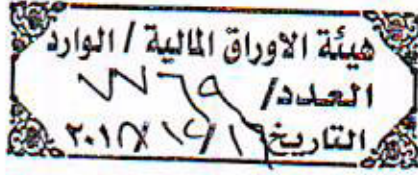 هيئة الاوراق المالية / الوارد
العدد/ ٧٧٦٩
التاريخ ١٩/١٢/٢٠١٨